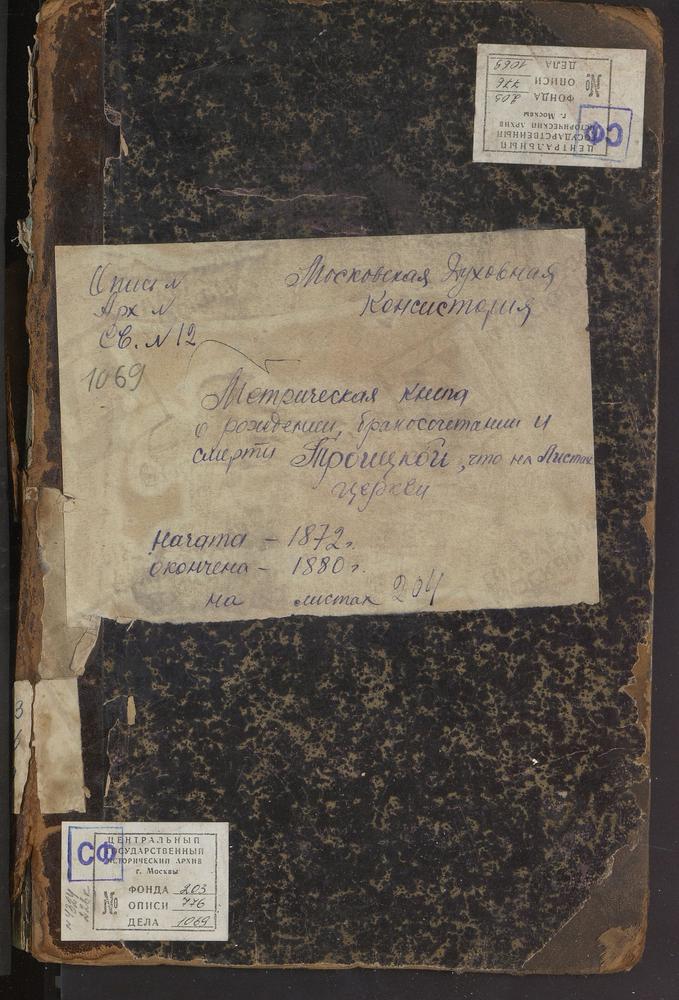 ЦЕНТРАЛЬНЫЙ
ГОСУДАРСТВЕННЫЙ
ИСТОРИЧЕСКИЙ АРХИВ
г. Москвы
СФ
ФОНДА 203
№ ОПИСИ 776
ДЕЛА 1069
Опись №
Арх №
Св. № 12
1069
Московская Духовная
Консистория
Метрическая книга
о рождении, бракосочетании и
смерти Троицкой, что на Листах
церкви
начата – 1872 г.
окончена – 1880 г.
на листах 204
3
СФ
ЦЕНТРАЛЬНЫЙ
ГОСУДАРСТВЕННЫЙ
ИСТОРИЧЕСКИЙ АРХИВ
г. Москвы
ФОНДА 203
№ ОПИСИ 776
ДЕЛА 1069